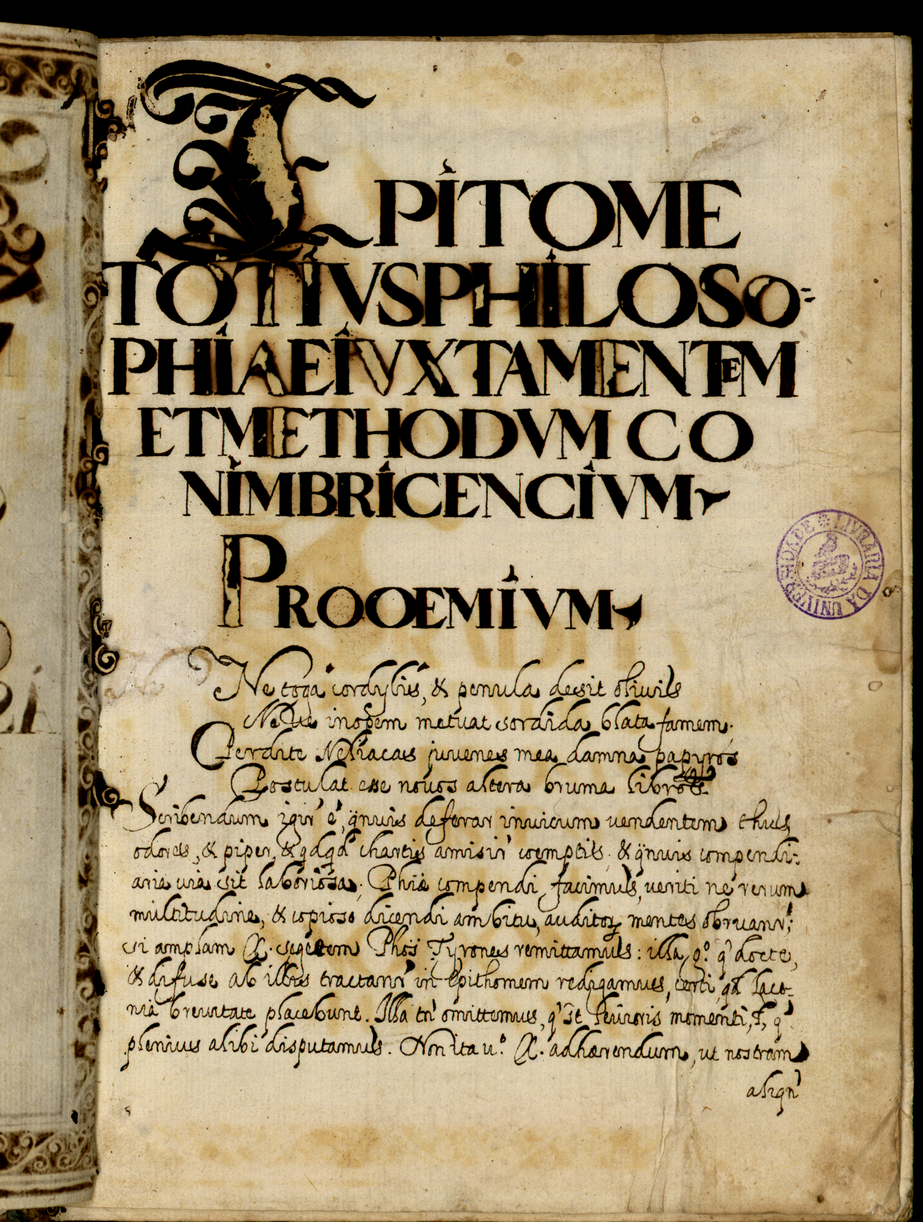 EPITOME
TOTIVSPHILOSO=
PHIAEIVXTAMENTEM
ETMETHODVM CO
NIMBRICENCIVM
PROOEMIVM
Ne toga cordylis, & penula desit olivis
Neque inopem metuat sordida blata famem.
Perdite Niliacas juvenes mea damna papyros
Postulat esse novos altera bruma libros
Scribendum igir̃ ẽ, q̃nuis deferar in uicum uendentem thus
odores, & piper, & qdqd chartis amisir̃ coemptis. & q̃nuis compendi-
aria uia sit laboriosa. Phiæ compendi facimus, ueriti ne rerum
multitudine, & copioso dicendi ambitu, auditoꝝ mentes obruanr̃,
si amplam segetem Phos Tyrones remittamus: illa, qᵉ docte,
& difuse ab illis tractanr̃ in Epithomem redigamus, certi, qd laco-
nia breuitate placebunt. Illa tñ omittemus, leuioris momenti,
plenius alibi disputamus. Non ita uº adhærendum, ut nostram
align̄
LIVRARIA DA UNIVERSIDADE